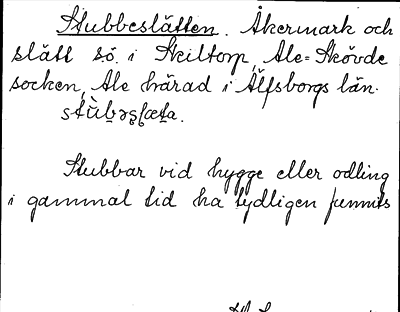 Stubbeslätten. Åkermark och
slätt sö. i Skiltorp, Ale-Skövde
socken, Ale härad i Älfsborgs län.
Stubbar vid hygge eller odling
i gammal tid ha tydligen funnits